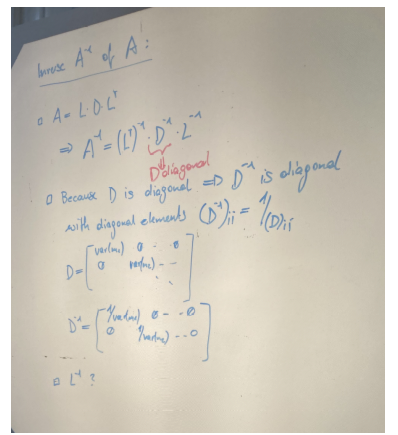 Inverse A⁻¹ of A:
□ A = L·D·Lᵀ
⇒ A⁻¹ = (Lᵀ)⁻¹·D⁻¹·L⁻¹
D diagonal
□ Because D is diagonal ⇒ D⁻¹ is diagonal
with diagonal elements (D⁻¹)ii = 1/(D)ii
D = [var(m₁) 0 - 0
0 var(m₂) - -]
D⁻¹ = [1/var(m₁) 0 - - 0
0 1/var(m₂) - - 0]
□ L⁻¹ ?